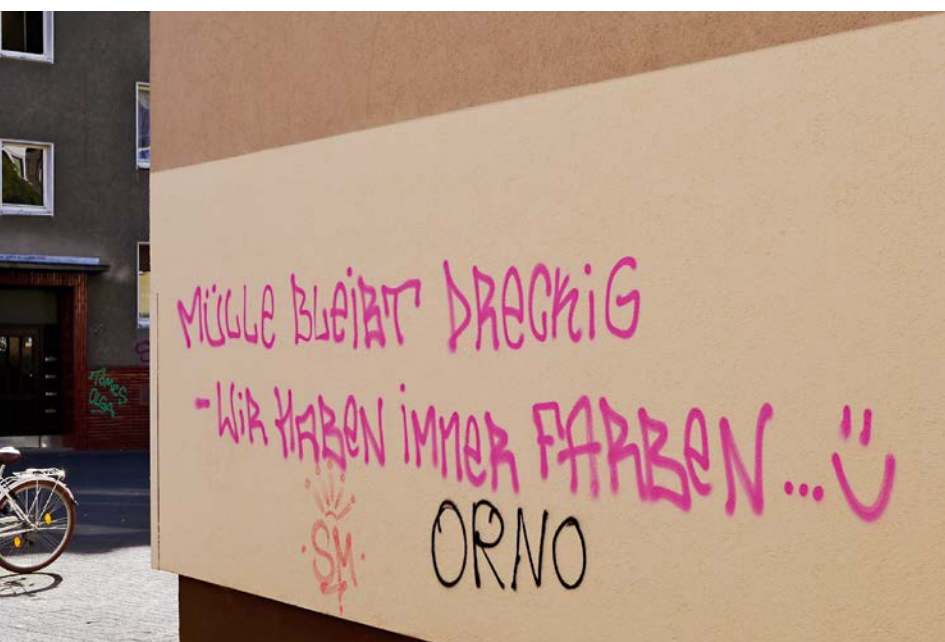 MÜLLE BLEIBT DRECKIG
-WIR HABEN IMMER FARBEN...
SM
ORNO
TOMCS
OLGA